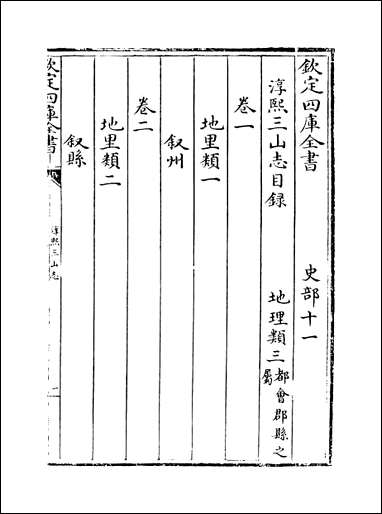 欽定四庫全書
史部十一
淳熙三山志目録
地理類三
都會郡縣之屬
卷一
地里類一
叙州
卷二
地里類二
叙縣
欽定四庫全書
淳熙三山志